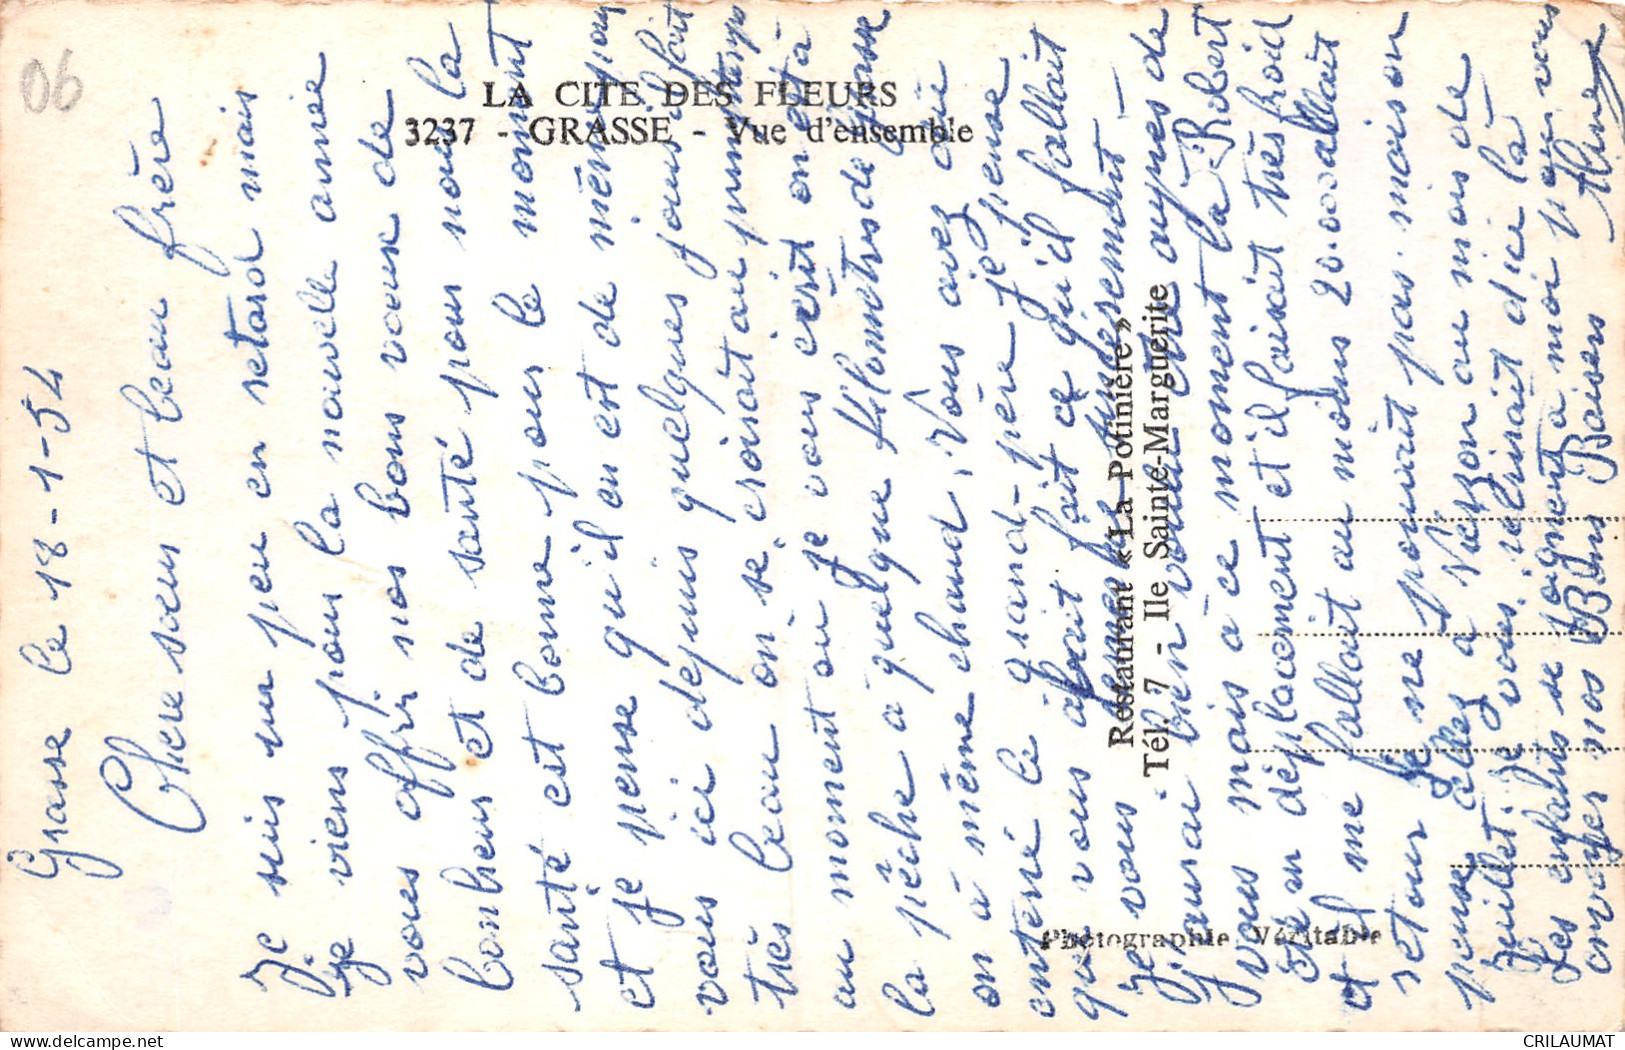 06
LA CITE DES FLEURS
3237 - GRASSE - Vue d'ensemble
Restaurant « La Potinière »
Tél. 7 - Ile Sainte-Marguerite
Photographie Véritable
Grasse le 18-1-54
Chere sœur et beau frère
Je suis un peu en retard mais
je viens pour la nouvelle année
vous offrir nos bons vœux de
bonheur et de santé pour nous la
santé est bonne pour le moment
et je pense qu'il en est de même pour
vous ici depuis quelques jours il fait
très beau on se croirait au printemps
au moment où je vous écrit on est à
la pêche à quelque kilomètres de Grasse
on a même chaud. Vous avez
enterré le grand-père je pense
que vous avait fait ce qu'il fallait
je vous
J'aurai bien voulu être auprès de
vous mais à ce moment la Robert
été en déplacement et il faisait très froid
et il me fallait au moins 20.000 allait
retour je ne pouvait pas. mois on
pense allez a Vierzon au mois de
Juillet. je vous d'ici là
Les enfants se joignent à moi pour vous
envoyer nos Bons Baisers
CRILAUMAT